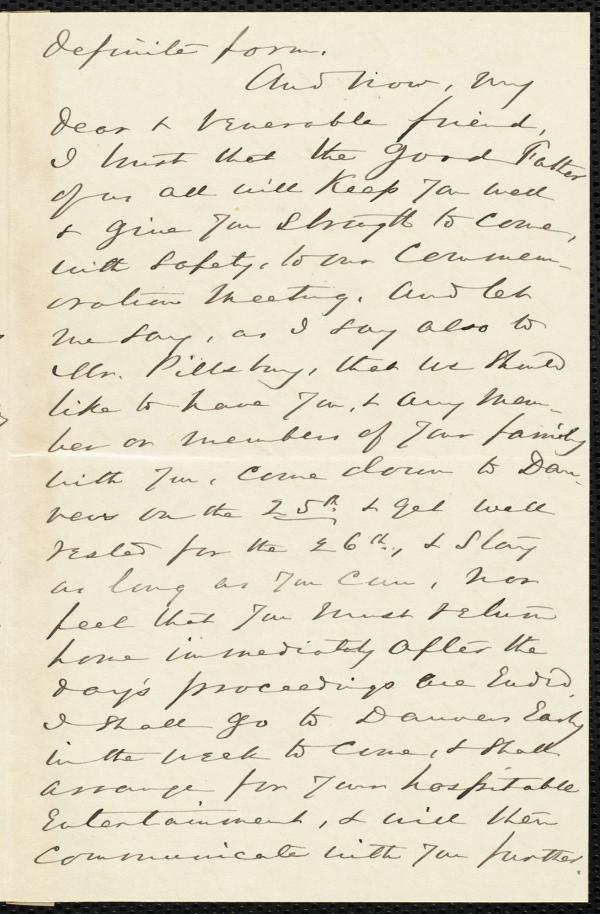 definite form.
And now, my
dear & venerable friend,
I trust that the Good Father
of us all will keep you well
& give you strength to come,
with safety, to our Commem-
oration meeting. And let
me say, as I say also to
Mr. Pillsbury, that we should
like to have you, & any mem-
ber or members of your family
with you, come down to Dan-
vers on the 25th. & get well
rested for the 26th., & stay
as long as you can, nor
feel that you must return
home immediately after the
day's proceedings are ended.
I shall go to Danvers early
in the week to come, & shall
arrange for your hospitable
entertainment, & will then
communicate with you further.